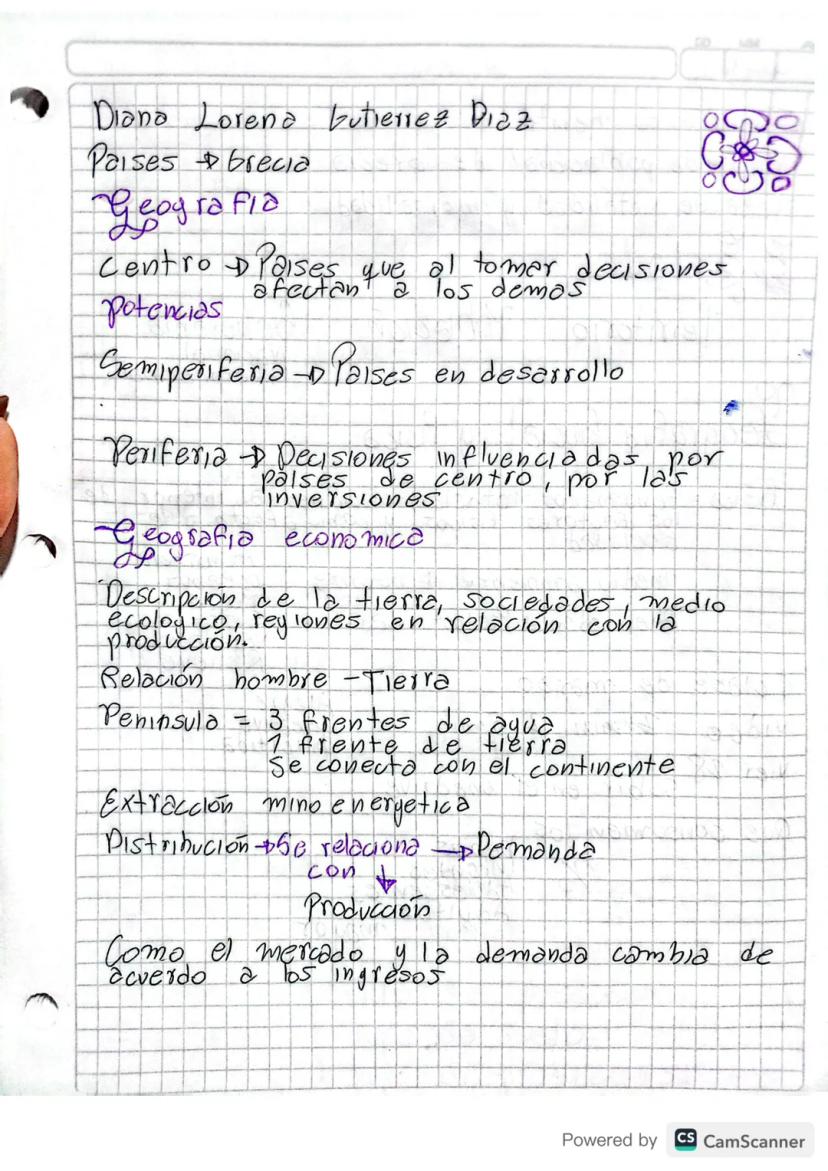 Diana Lorena Gutierrez Diaz
Paises → Grecia
Geografia
Centro → Paises que al tomar decisiones
afectan a los demas
potencias
Semiperiferia → Paises en desarrollo
Periferia → Decisiones influenciadas por
paises de centro, por las
inversiones
Geografia economica
Descripción de la tierra, sociedades, medio
ecologico, regiones en relación con la
producción.
Relación hombre - Tierra
Peninsula = 3 frentes de agua
1 frente de tierra
Se conecta con el continente
Extracción mino energetica
Distribución → Se relaciona → Demanda
con ↓
Producción
Como el mercado y la demanda cambia de
acuerdo a los ingresos
Powered by CS CamScanner